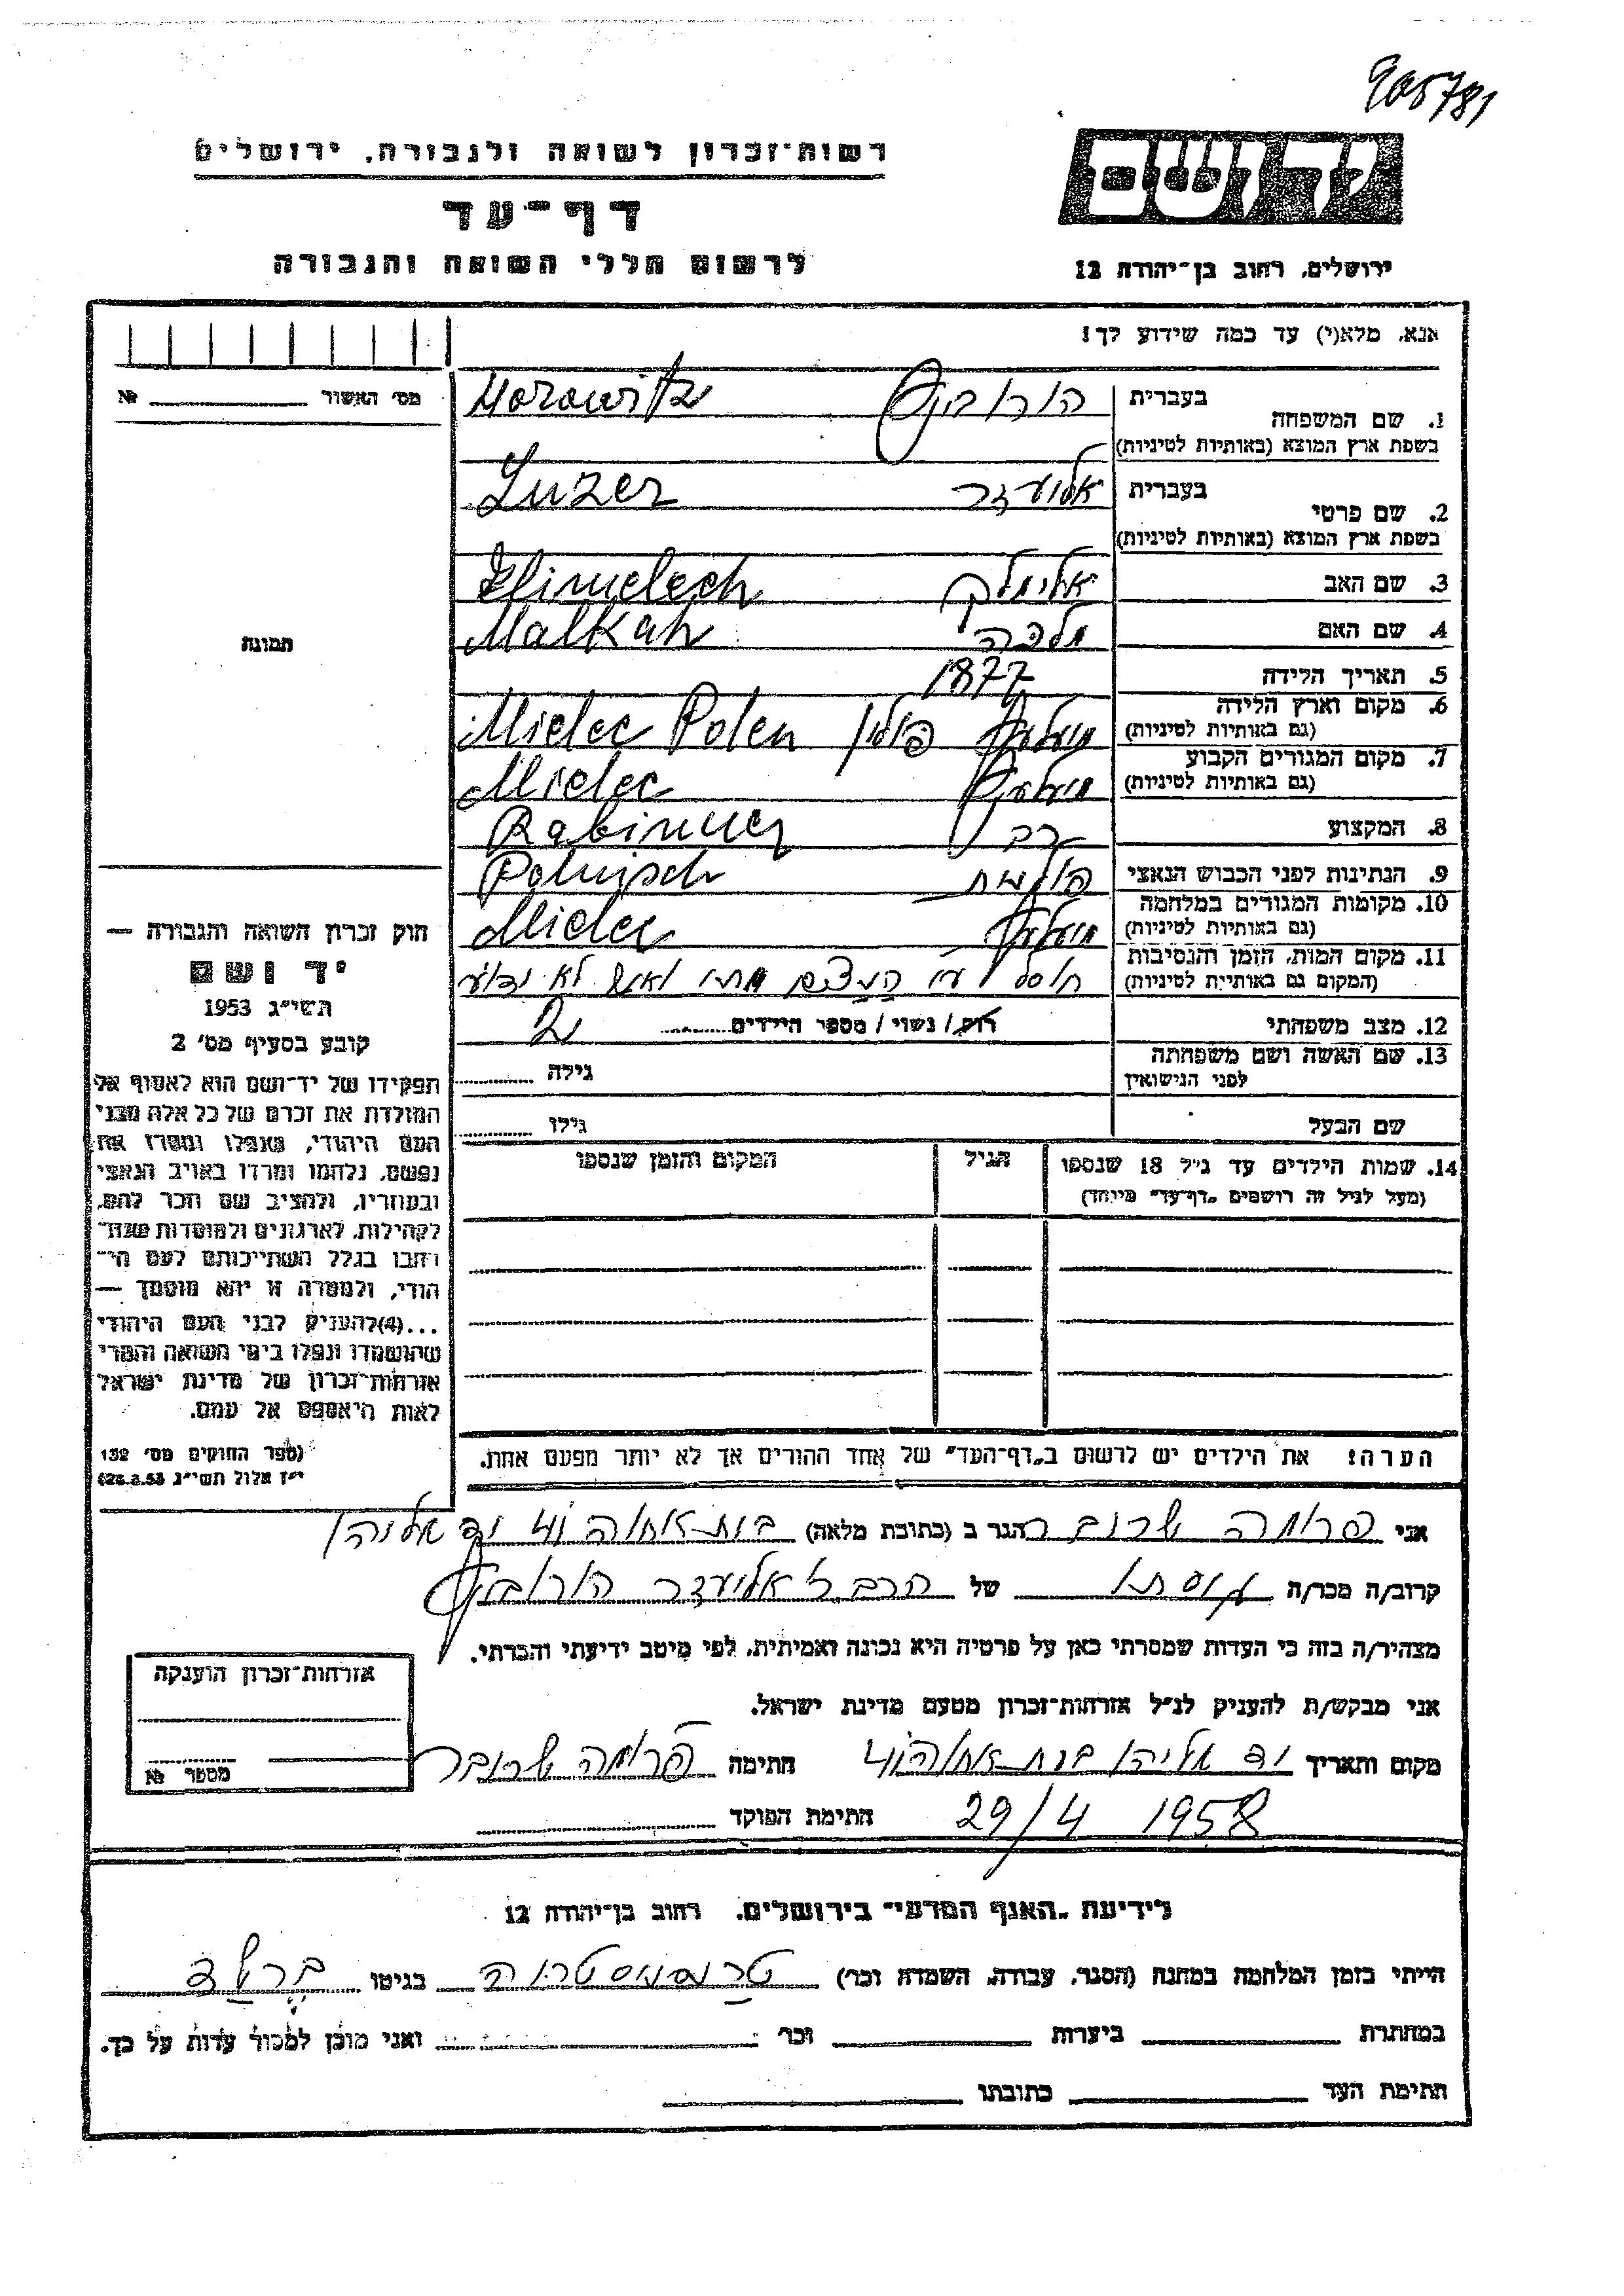 905781
רשות-זכרון לשואה ולגבורה, ירושלים
דף-עד
לרשום חללי השואה והגבורה
יד ושם
ירושלים, רחוב בן-יהודה 12
אנא, מלא(י) עד כמה שידוע לך!
מס' האשור №
תמונה
1. שם המשפחה בעברית הורוביץ Horowitz
בשפת ארץ המוצא (באותיות לטיניות)
2. שם פרטי בעברית אליעזר Luzer
בשפת ארץ המוצא (באותיות לטיניות)
3. שם האב אלימלך Elimelech
4. שם האם מלכה Malkah
5. תאריך הלידה 1877
6. מקום וארץ הלידה מיעלעץ פולין Mielec Polen
(גם באותיות לטיניות)
7. מקום המגורים הקבוע מיעלעץ Mielec
(גם באותיות לטיניות)
8. המקצוע רב Rabiner
9. הנתינות לפני הכבוש הנאצי פולנית Polnisch
10. מקומות המגורים במלחמה מיעלעץ Mielec
(גם באותיות לטיניות)
11. מקום המות, הזמן והנסיבות חוסל ע"י הנאצים מתי ואיפה לא ידוע
(המקום גם באותיות לטיניות)
12. מצב משפחתי רוק/ נשוי/ מספר הילדים 2
13. שם האשה ושם משפחתה
לפני הנישואין גילה
שם הבעל גילו
14. שמות הילדים עד גיל 18 שנספו הגיל המקום והזמן שנספו
(מעל לגיל זה רושמים "דף-עד" מיוחד)
הערה: את הילדים יש לרשום ב"דף-העד" של אחד ההורים אך לא יותר מפעם אחת.
חוק זכרון השואה והגבורה —
יד ושם
תשי"ג 1953
קובע בסעיף מס' 2
תפקידו של יד-ושם הוא לאסוף אל
המולדת את זכרם של כל אלה מבני
העם היהודי, שנפלו ומסרו את
נפשם, נלחמו ומרדו באויב הנאצי
ובעוזריו, ולהציב שם וזכר להם,
לקהילות, לארגונים ולמוסדות שנח-
רבו בגלל השתייכותם לעם הי-
הודי, ולמטרה זו יהא מוסמך —
...(4)להעניק לבני העם היהודי
שהושמדו ונפלו בימי השואה והמרי
אזרחות-זכרון של מדינת ישראל
לאות היאספם אל עמם.
(ספר החוקים מס' 132
י"ז אלול תשי"ג 28.8.53)
אני פרומה הגר ב (כתובת מלאה) יד אליהו
קרוב/ה מכר/ה של הרב ר' אליעזר הורוביץ
מצהיר/ה בזה כי העדות שמסרתי כאן על פרטיה היא נכונה ואמיתית, לפי מיטב ידיעתי והכרתי.
אני מבקש/ת להעניק לנ"ל אזרחות-זכרון מטעם מדינת ישראל.
מקום ותאריך יד אליהו חתימה פרומה
29/4 1958 חתימת הפוקד
אזרחות-זכרון הוענקה
מספר №
לידיעת "האגף המדעי" בירושלים, רחוב בן-יהודה 12
הייתי בזמן המלחמה במחנה (הסגר, עבודה, השמדה וכו') טרנסניסטריה בגיטו ברשד
במחתרת ביערות וכו' ואני מוכן למסור עדות על כך.
חתימת העד כתובתו